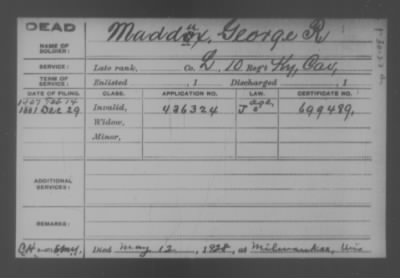 DEAD
NAME OF SOLDIER: Maddux, George R
SERVICE: Late rank, Co. L, 10 Reg't Ky, Cav,
TERM OF SERVICE: Enlisted , 1 Discharged , 1
DATE OF FILING. CLASS. APPLICATION NO. LAW. CERTIFICATE NO.
1907 Feb 14
1881 Dec 29. Invalid, 436324 age, 699489.
Widow,
Minor,
ADDITIONAL SERVICES:
REMARKS:
Died May 12, 1928, at Milwaukee, Wis